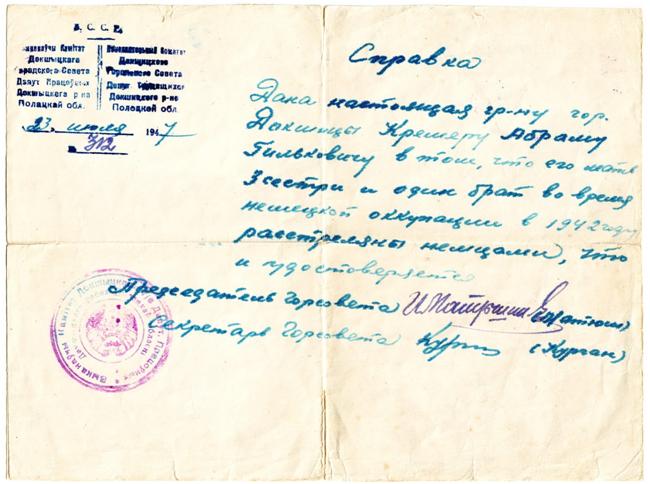 Б. С. С. Р.
Выканаўчы Камітэт
Докшыцкага
Гарадскога Совета
Дэпут. Працоўных
Докшыцкага р-на
Полацкай обл.
Исполнительный Комитет
Докшицкого
Городского Совета
Депут. Трудящихся
Докшицкого р-на
Полоцкой обл.
23 июля 1947
312
Справка
Дана настоящая гр-ну гор.
Докшицы Кремеру Абраму
Гильковичу в том, что его мать
3 сестри и один брат во время
немецкой оккупации в 1942 году
расстреляны немцами, что
и удостоверяется
Председатель Горсовета
Секретарь Горсовета (Курган)